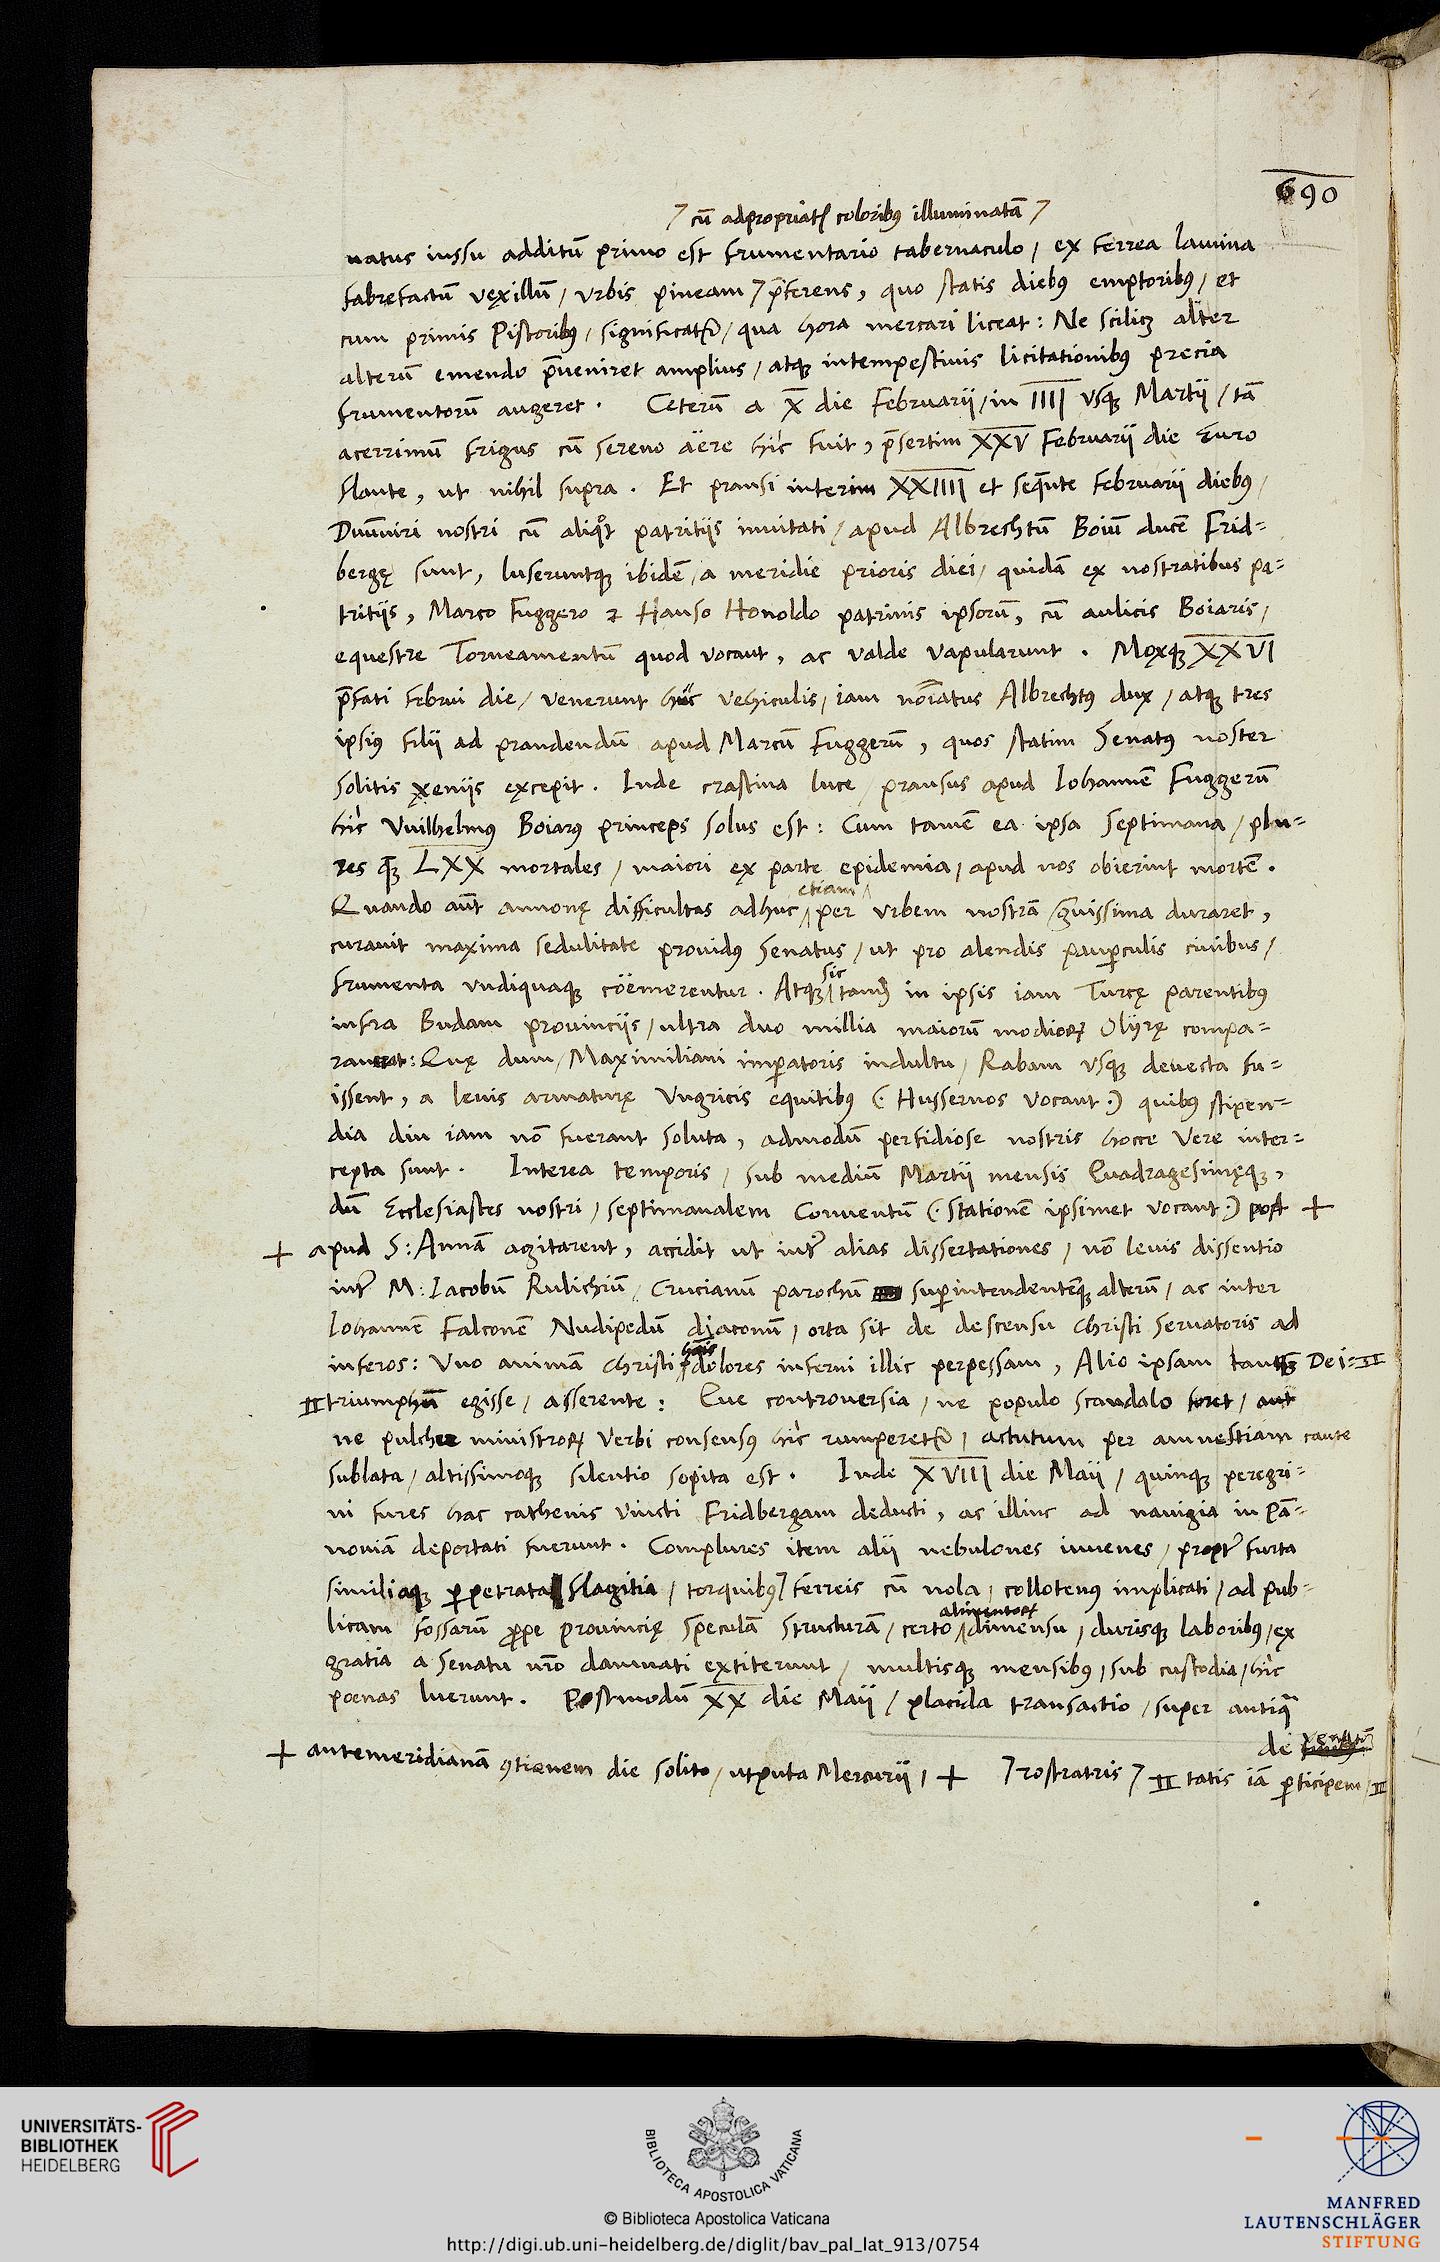 690
7 cū adpropriatis coloribus illuminatā 7
natus iussu additū primo est frumentario tabernaculo / ex ferrea lamina
fabrefactū vexillū / vrbis pineam 7 p̄ferens, quo statis diebus emptoribus / et
cum primis Pistoribus / significatur / qua hora mercari liceat: Ne scilicet alter
alterū emendo p̄ueniret amplius / atque intempestiuis licitationibus precia
frumentorū augeret. Ceterū a X die Februarij / in IIII vsque Martij / tā
acerrimū frigus cū sereno aëre hic fuit, p̄sertim XXV Februarij die Euro
flante, ut nihil supra. Et pransi interim XXIIII et sequēte februarij diebus /
Duūuiri nostri cū aliquot patritijs inuitati / apud Albrechtū Boiū ducē Frid=
bergę sunt, luseruntque ibidē / a meridie prioris diei / quidā ex nostratibus pa=
tritijs, Marco Fuggero & Hanso Honoldo patrinis ipsorū, cū aulicis Boiaris /
equestre Torneamentū quod vocant, ac valde vapularunt. Moxque XXVI
p̄fati febrni die / venerunt huc vehiculis / iam noīatus Albrechtus dux / atque tres
ipsius filij ad prandendū apud Marcū Fuggerū, quos statim Senatus noster
solitis xeniis excepit. Inde crastina luce / pransus apud Iohannē Fuggerū
hic Vuilhelmus Boiarus princeps solus est: Cum tamē ea ipsa septimana / plu=
res quā LXX mortales / maiori ex parte epidemia / apud nos obierint mortē.
etiam
Quando aūt annonę difficultas adhuc per vrbem nostrā grauissima duraret,
curauit maxima sedulitate prouidus Senatus / ut pro alendis pauperculis ciuibus /
sic
frumenta vndiquaque coëmerentur. Atque tandē in ipsis iam Turcę parentibus
infra Budam prouincijs / ultra duo millia maiorū modiorum Olyrę compa=
rauerat: Quę dum / Maximiliani imperatoris indultu / Rabam vsque deuecta fu=
issent, a leuis armaturę Vngricis equitibus (: Hussernos vocant :) quibus stipen=
dia diu iam nō fuerant soluta, admodū perfidiose nostris hocce Vere inter=
cepta sunt. Interea temporis / sub mediū Martij mensis Quadragesimęque,
dū Ecclesiastes nostri / septimanalem Conuentū (: Stationē ipsimet vocant :) post +
+ apud S: Annā agitarent, accidit ut inter alias dissertationes / nō leuis dissentio
inter M: Iacobū Rulichiū / Crucianū parochū superintendentēque alterū / ac inter
Iohannē Falconē Nudipedū diaconū / orta sit de descensu Christi Seruatoris ad
inferos: Vno animā Christi dolores inferni illic perpessam, Alio ipsam tanquā Dei= II
II triumphū egisse / asserente: Que controuersia / ne populo scandalo foret / aut
ne pulcher ministrorum Verbi consensus hic rumperetur / actutum per amnestiam caute
sublata / altissimoque silentio sopita est. Inde XVIII die Maij / quinque peregri=
ni fures hac cathenis vincti Fridbergam deducti, ac illinc ad nauigia in Pā=
noniā deportati fuerunt. Complures item alij nebulones iuuenes / propter furta
similiaque perpetrata flagitia / torquibus 7 ferreis cū nola / collotenus implicati / ad pub=
alimentorum
licam fossarū prope prouincię speculā structurā / certo dimensu / durisque laboribus / ex
gratia a Senatu nr̄o damnati extiterunt / multisque mensibus / sub custodia / hic
poenas luerunt. Postmodū XX die Maij / placida transactio / super antiqua
de
+ antemeridianā contionem die solito / utputa Mercurij / + 7 rostratis 7 II tatis iā participem / II
UNIVERSITÄTS-
BIBLIOTHEK
HEIDELBERG
BIBLIOTECA APOSTOLICA VATICANA
© Biblioteca Apostolica Vaticana
http://digi.ub.uni-heidelberg.de/diglit/bav_pal_lat_913/0754
MANFRED
LAUTENSCHLÄGER
STIFTUNG